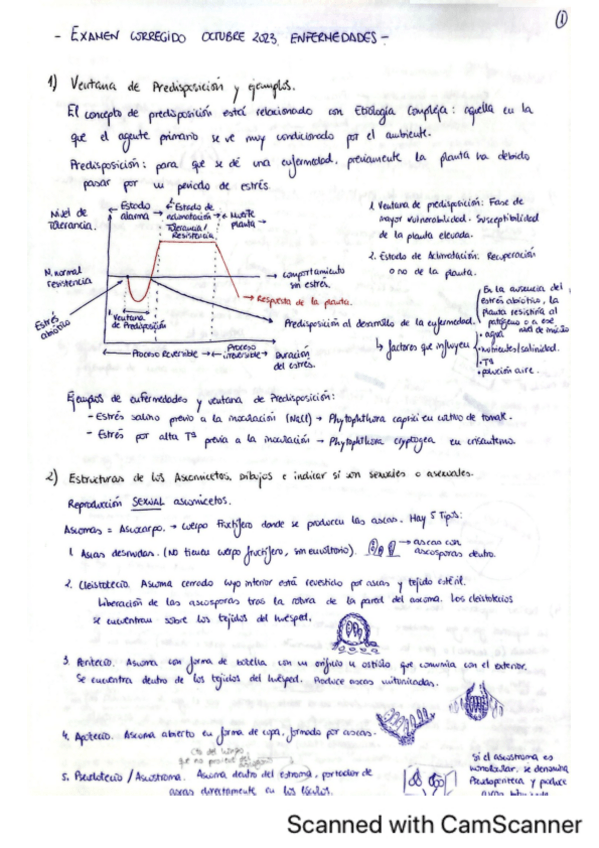 ①
- EXAMEN CORREGIDO OCTUBRE 2023. ENFERMEDADES -
1) Ventana de Predisposición y ejemplos.
El concepto de predisposición está relacionado con Etiología Compleja: aquella en la
que el agente primario se ve muy condicionado por el ambiente.
Predisposición: para que se dé una enfermedad, previamente la planta ha debido
pasar por un periodo de estrés.
Nivel de
Tolerancia.
← Estado
alarma →
← Estado de
aclimatación →
Tolerancia/
Resistencia
← Muerte
planta →
N. normal
resistencia
Estrés
abiótico
1. Ventana
de Predisposición
→ comportamiento
sin estrés.
→ Respuesta de la planta.
Predisposición al desarrollo de la enfermedad.
← Proceso Reversible →
← Proceso
irreversible →
Duración
del estrés.
1. Ventana de predisposición: Fase de
mayor vulnerabilidad. Susceptibilidad
de la planta elevada.
2. Estado de Aclimatación: Recuperación
o no de la planta.
En la ausencia del
estrés abiótico, la
planta resistiría al
patógeno o a ese
nivel de inóculo
↳ factores que influyen
• agua
• nutrientes/salinidad.
• Tª
• polución aire.
Ejemplos de enfermedades y ventana de Predisposición:
- Estrés salino previo a la inoculación (NaCl) → Phytophthora capsici en cultivo de tomate.
- Estrés por alta Tª previa a la inoculación → Phytophthora cryptogea en crisantemo.
2) Estructuras de los Ascomicetos. Dibujos e indicar si son sexuales o asexuales.
Reproducción SEXUAL ascomicetos.
Ascomas = Ascocarpo. → cuerpo fructífero donde se producen las ascas. Hay 5 Tipos:
1. Ascas desnudas. (NO tienen cuerpo fructífero, sin envoltorio).
→ ascas con
ascosporas dentro.
2. Cleistotecio. Ascoma cerrado cuyo interior está revestido por ascas y tejido estéril.
Liberación de las ascosporas tras la rotura de la pared del ascoma. Los cleistotecios
se encuentran sobre los tejidos del huésped.
3. Peritecio. Ascoma con forma de botella con un orificio u ostiolo que comunica con el exterior.
Se encuentra dentro de los tejidos del huésped. Produce ascas unitunicadas.
4. Apotecio. Ascoma abierto en forma de copa, formado por ascas.
5. Pseudotecio / Ascostroma. Ascoma dentro del estroma, portador de
ascas directamente en los lóculos.
Si el ascostroma es
unilocular, se denomina
Pseudoperiteca y produce
Scanned with CamScanner